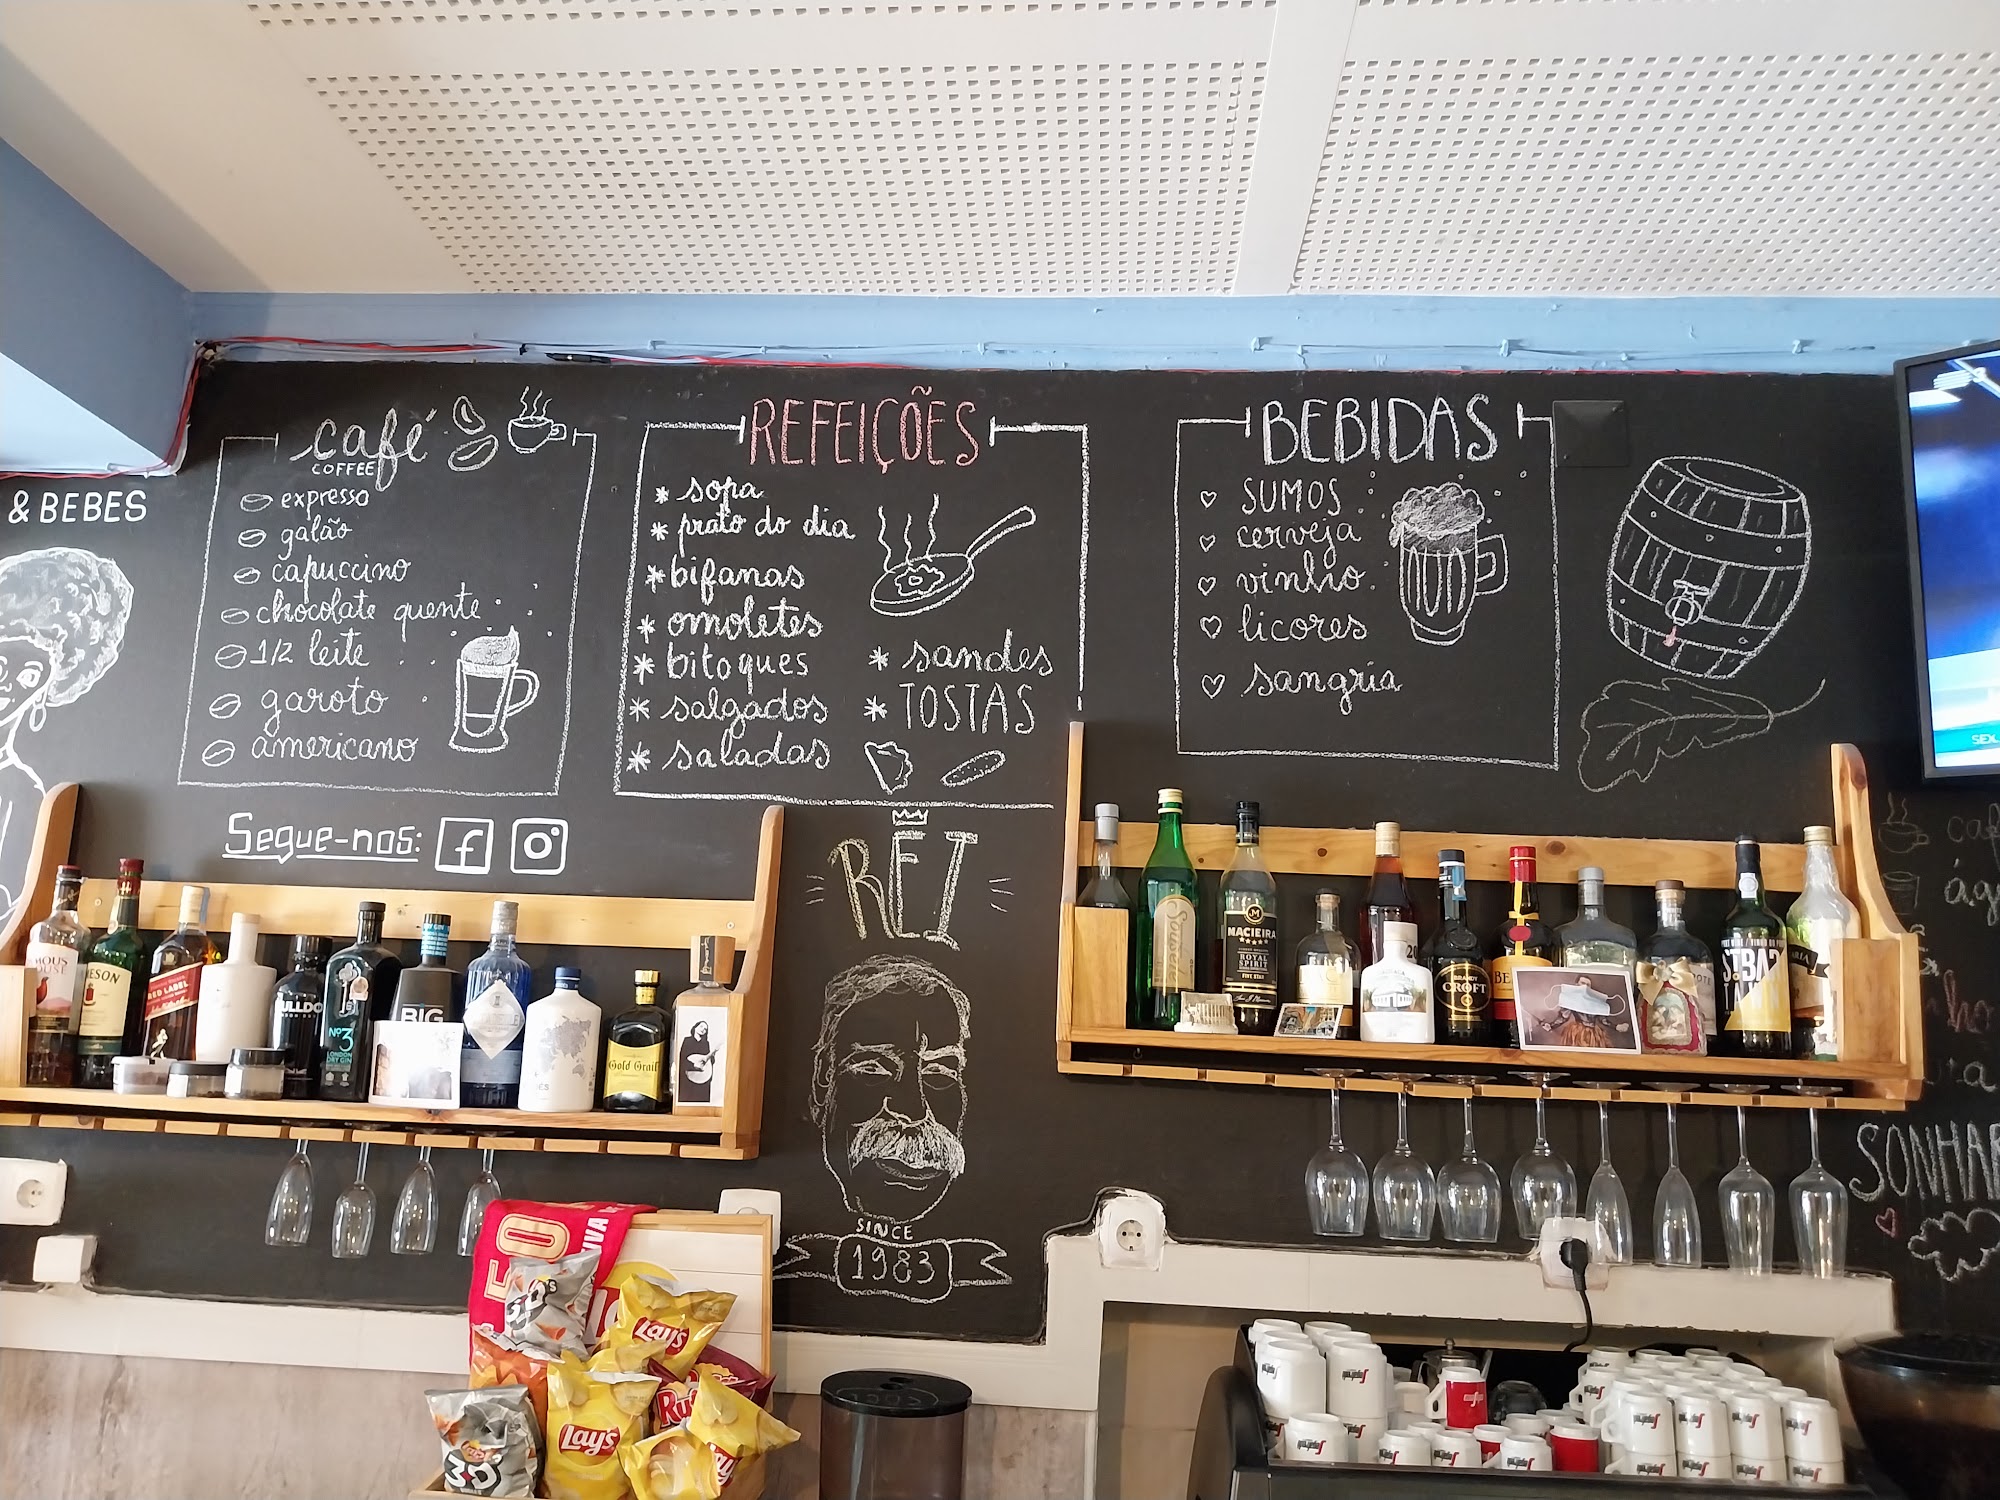 & BEBES
café
COFFEE
expresso
galão
capuccino
chocolate quente
1/2 leite
garoto
americano
Segue-nos:
REFEIÇÕES
* sopa
* prato do dia
* bifanas
* omoletes
* bitoques
* salgados
* saladas
* sandes
* TOSTAS
BEBIDAS
SUMOS
cerveja
vinho
licores
sangria
REI
SINCE
1983
SONHAR
RED LABEL
Nº3
LONDON
DRY GIN
BIG
Gold Grail
MACIEIRA
ROYAL
SPIRIT
BRANDY
CROFT
Lay's
Lay's
3D's
VIVA